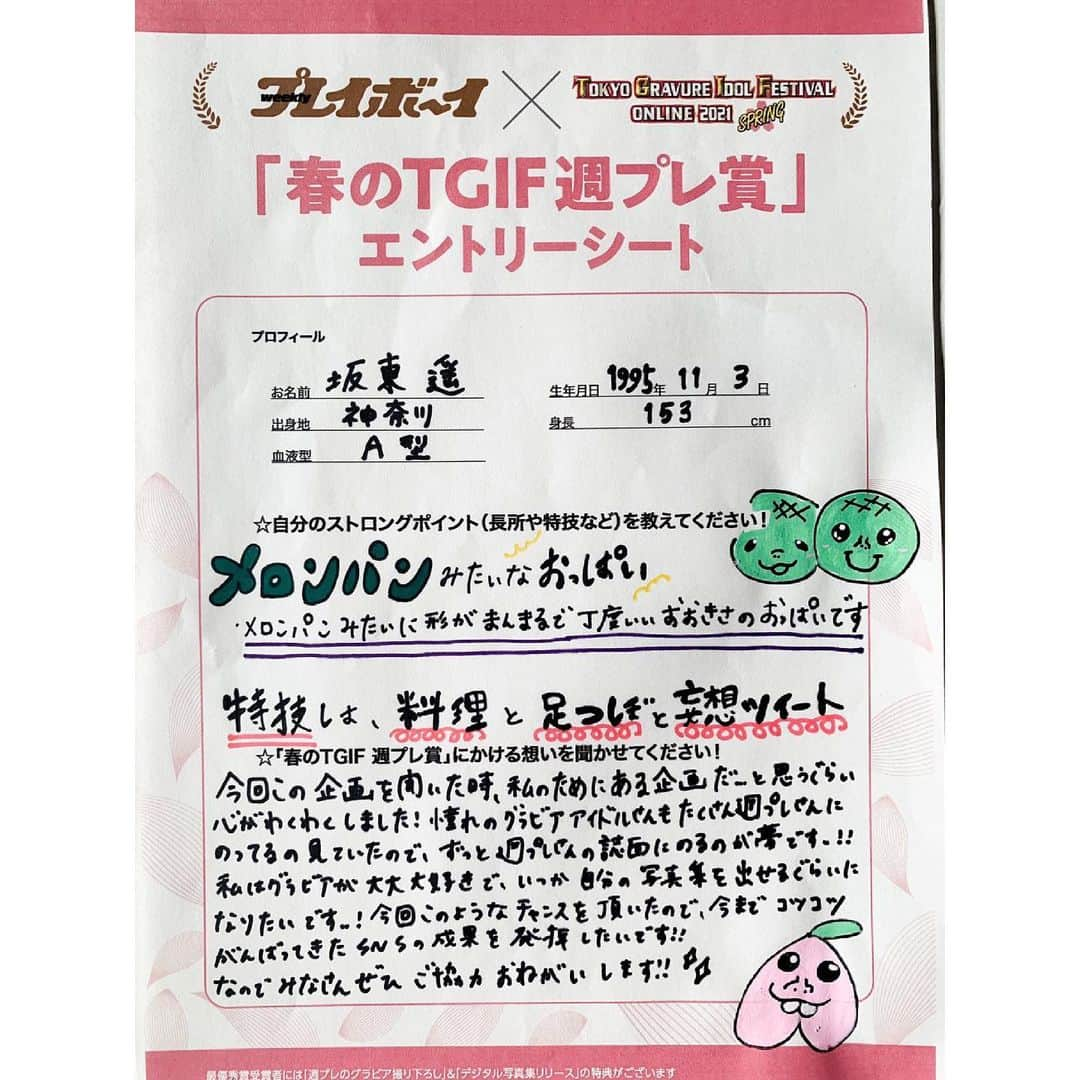 weekly プレイボーイ × TOKYO GRAVURE IDOL FESTIVAL
ONLINE 2021 SPRING
「春のTGIF 週プレ賞」
エントリーシート
プロフィール
お名前 坂東 遥 生年月日 1995年 11月 3日
出身地 神奈川 身長 153 cm
血液型 A型
☆自分のストロングポイント(長所や特技など)を教えてください!
メロンパンみたいなおっぱい
メロンパンみたいに形がまんまるで丁度いいおおきさのおっぱいです
特技は、料理と足つぼと妄想ツイート
☆「春のTGIF 週プレ賞」にかける想いを聞かせてください!
今回この企画を聞いた時、私のためにある企画だーと思うぐらい
心がわくわくしました!憧れのグラビアアイドルさんもたくさん週プレさんに
のってるの見ていたので、ずっと週プレさんの誌面にのるのが夢です..!!
私はグラビアが大大大好きで、いつか自分の写真集を出せるぐらいに
なりたいです..!今回このようなチャンスを頂いたので、今までコツコツ
がんばってきたSNSの成果を発揮したいです!!
なのでみなさんぜひご協力おねがいします!!
最優秀賞受賞者には「週プレのグラビア撮り下ろし」&「デジタル写真集リリース」の特典がございます